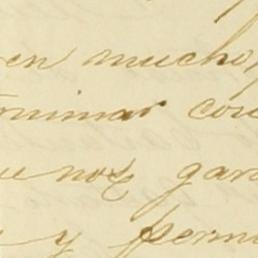 en mucho,
ominar con
ue nos gar
y permi